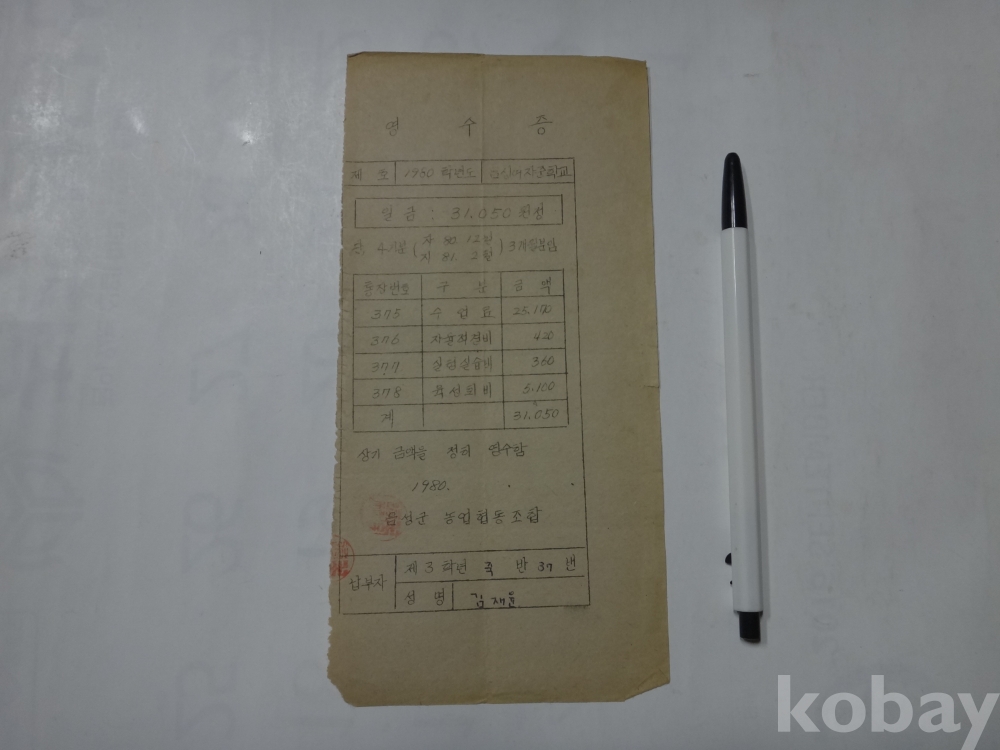 영 수 증
제 호 1980 학년도
일 금 : 31.050 원정
4/4분 (자 80. 12월 지 81. 2월) 3개월분임
통장번호 구 분 금 액
375 수 업 료 25.170
376 자율적경비 420
377 실험실습비 360
378 육성회비 5.100
계 31.050
상기 금액을 정히 영수함
1980. . .
음성군 농업협동조합
납부자 제 3 학년 죽 반 37 번
성 명 김재윤
kobay